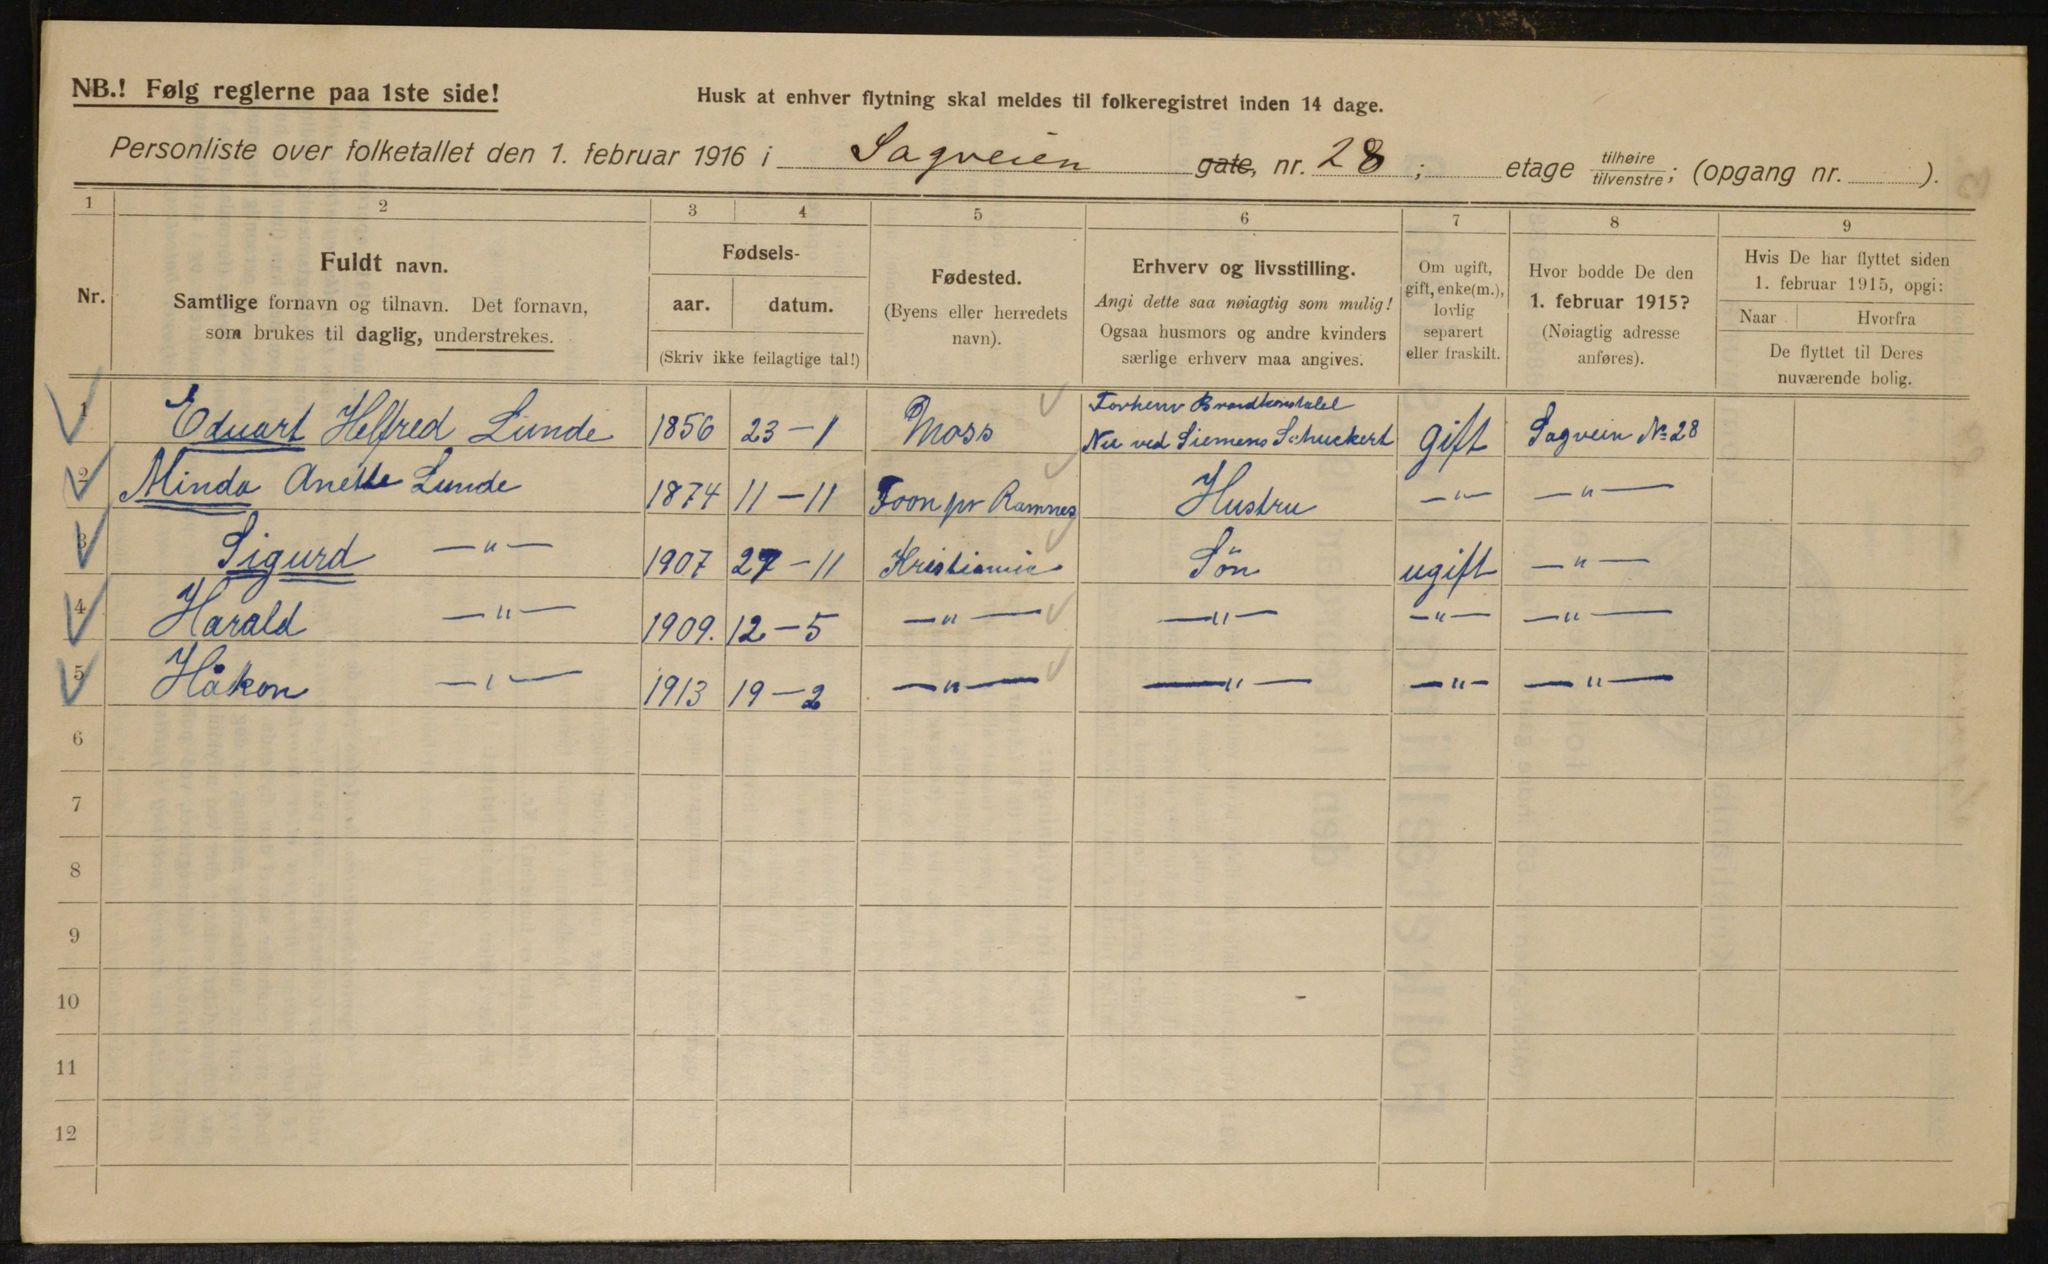 NB.! Følg reglerne paa 1ste side!
Husk at enhver flytning skal meldes til folkeregistret inden 14 dage.
Personliste over folketallet den 1. februar 1916 i Sagveien gate, nr. 28; etage tilhøire/tilvenstre; (opgang nr. ).
1 2 3 4 5 6 7 8 9
Nr.
Fuldt navn.
Samtlige fornavn og tilnavn. Det fornavn,
som brukes til daglig, understrekes.
Fødsels-
aar. datum.
(Skriv ikke feilagtige tal!)
Fødested.
(Byens eller herredets
navn).
Erhverv og livsstilling.
Angi dette saa nøiagtig som mulig!
Ogsaa husmors og andre kvinders
særlige erhverv maa angives.
Om ugift,
gift, enke(m.),
lovlig
separert
eller fraskilt.
Hvor bodde De den
1. februar 1915?
(Nøiagtig adresse
anføres).
Hvis De har flyttet siden
1. februar 1915, opgi:
Naar Hvorfra
De flyttet til Deres
nuværende bolig.
1 Eduart Helfred Lunde 1856 23-1 Moss Forhenv Brandkonstabel
Nu ved Siemens Schuckert gift Sagvein No 28
2 Minda Anette Lunde 1874 11-11 Foon pr Ramnes Hustru —"— —"—
3 Sigurd —"— 1907 27-11 Kristiania Sön ugift —"—
4 Harald —"— 1909. 12-5 —"— —"— —"— —"—
5 Håkon —"— 1913 19-2 —"— —"— —"— —"—
6
7
8
9
10
11
12